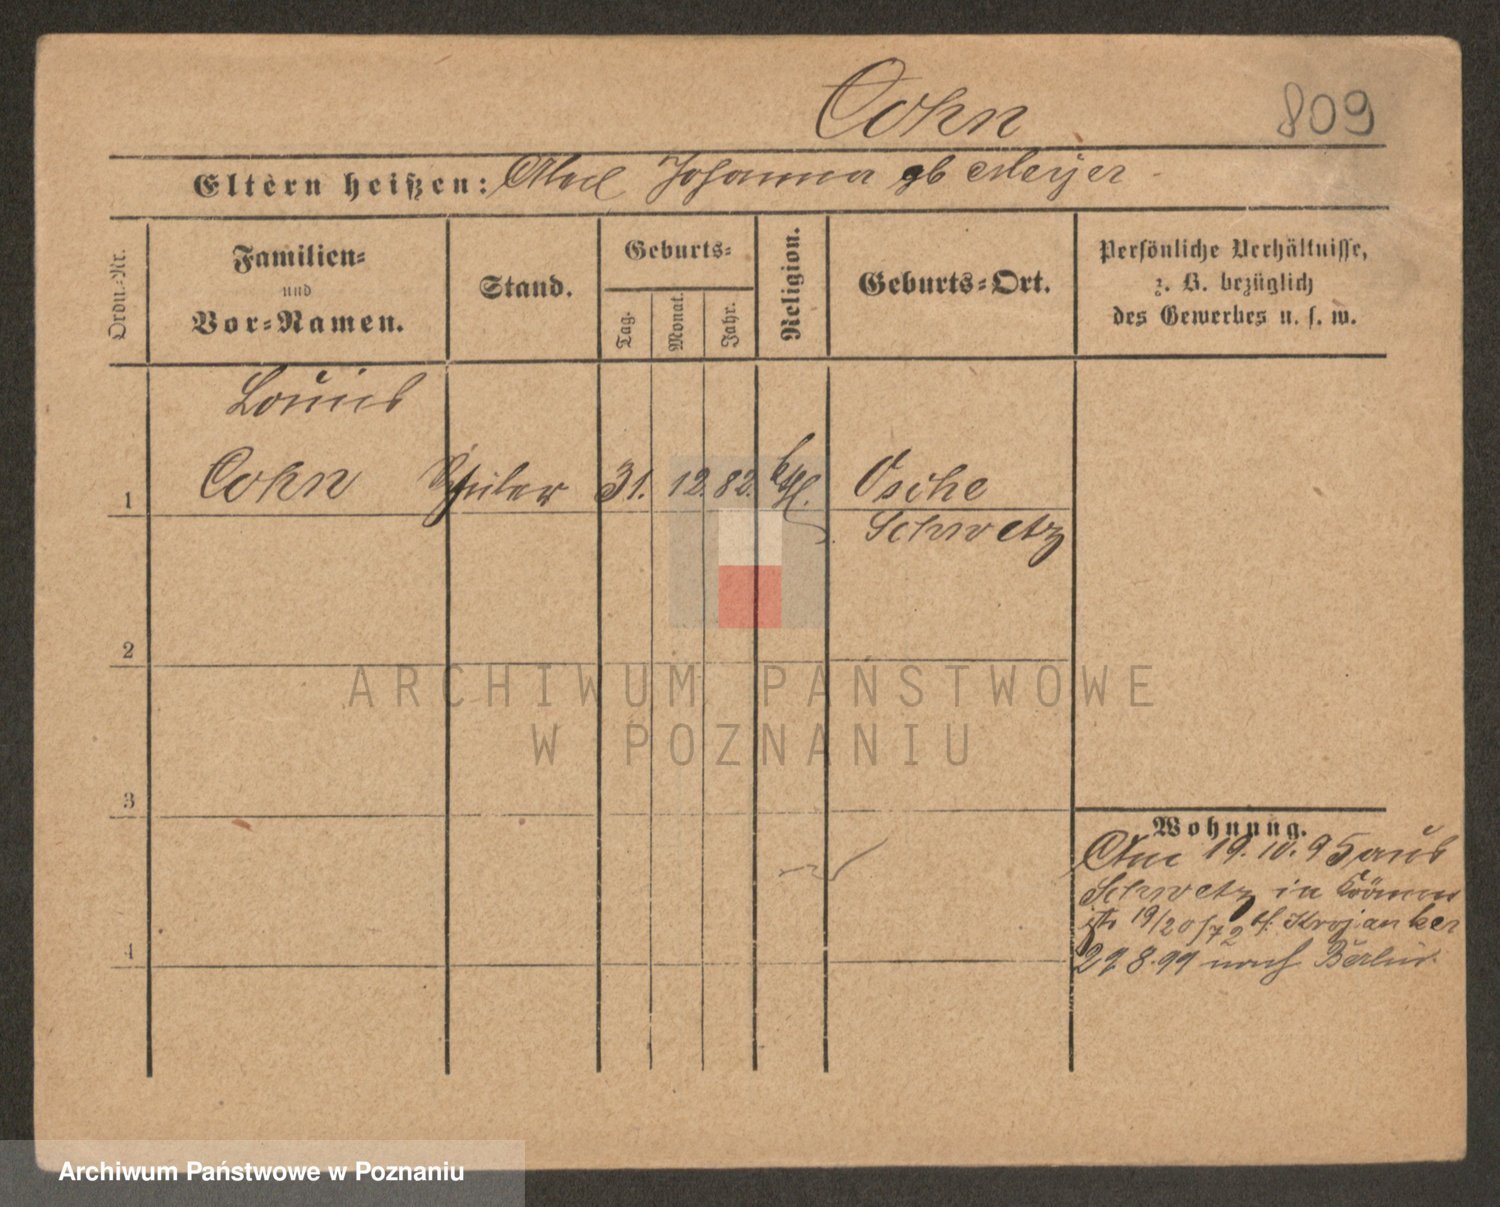 Cohn
809
Eltern heißen: Abel Johanna gb Meyer
Ordn.-Nr.
Familien-
und
Vor-Namen.
Stand.
Geburts-
Tag.
Monat.
Jahr.
Religion.
Geburts-Ort.
Persönliche Verhältnisse,
z. B. bezüglich
des Gewerbes u. s. w.
Louis
1 Cohn Schüler 31. 12. 82. Osche
Schwetz
2
3
4
Wohnung.
19. 10. 95 aus
Schwetz in
19/20/72 b/. Krojanker
29.8.99 nach Berlin.
ARCHIWUM PAŃSTWOWE
W POZNANIU
Archiwum Państwowe w Poznaniu